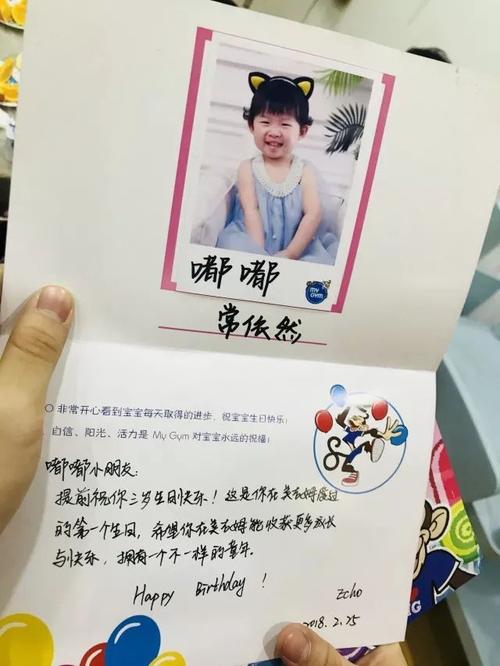 嘟嘟
my gym
常依然
非常开心看到宝宝每天取得的进步，祝宝宝生日快乐！
自信、阳光、活力是 My Gym 对宝宝永远的祝福！
嘟嘟小朋友：
提前祝你三岁生日快乐！这是你在美吉姆度过
的第一个生日，希望你在美吉姆能收获更多成长
与快乐，拥有一个不一样的童年。
Happy Birthday！
Echo
2018.2.25